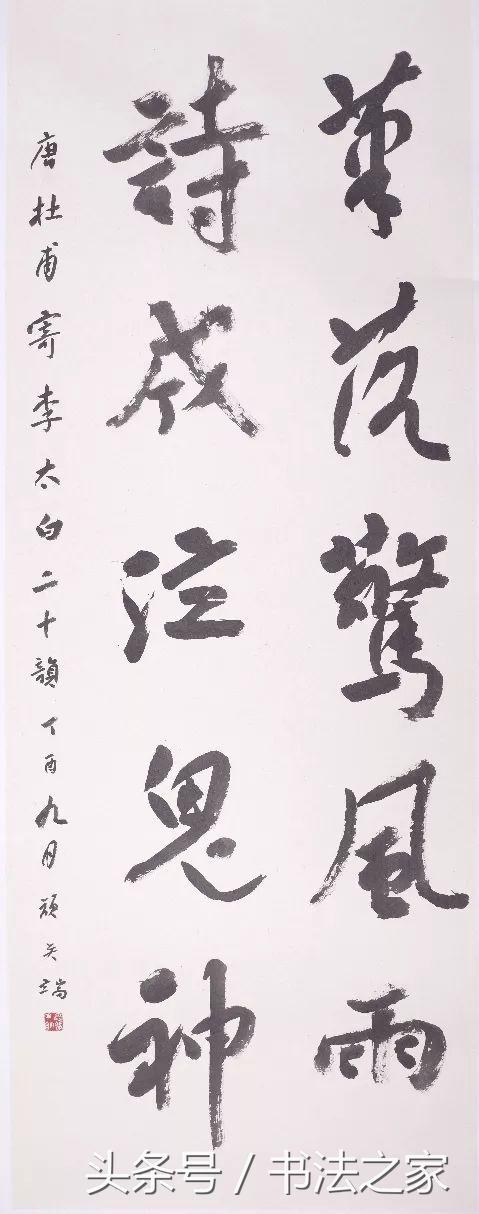 筆落驚風雨
詩成泣鬼神
唐杜甫寄李太白二十韻丁酉九月
头条号 / 书法之家